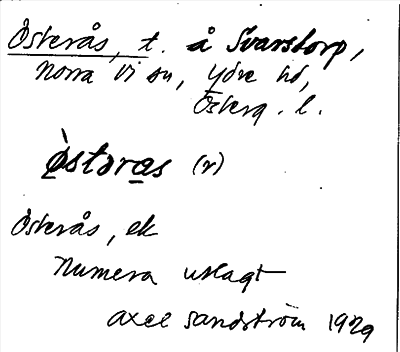 Österås, t. å Svarstorp,
Norra Vi sn, Ydre hd,
Österg. l.
òstəras (r)
Österås, ek
Numera utlagt
Axel Sandström 1929